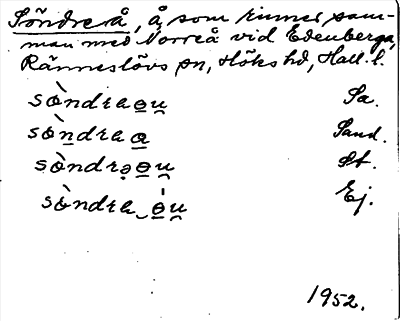 Söndreå, å, som rinner sam-
man med Norreå vid Edenberga,
Ränneslövs sn, Höks hd, Hall. l.
sòndra Sa.
sòndra Sand.
sòndrə St.
sòndra Ej.
1952.